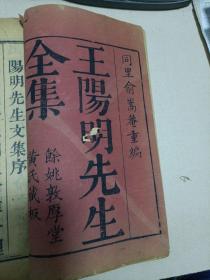 同里俞嵩菴重編
王陽明先生
全集
餘姚敦厚堂
黃氏藏板
陽明先生文集序